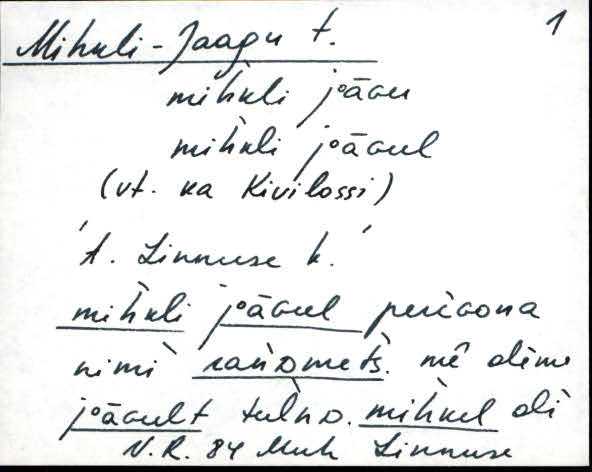 1
Mihkli-Jaagu t.
mìhkli jāGu
mìhkli jāGul
(vt. ka Kivilossi)
't. Linnuse k.'
mìhkli jāGul pericona
nimì rańDmets. mē olème
jāGult tulnD. mihkel oli
N.R. 84 Muh Linnuse